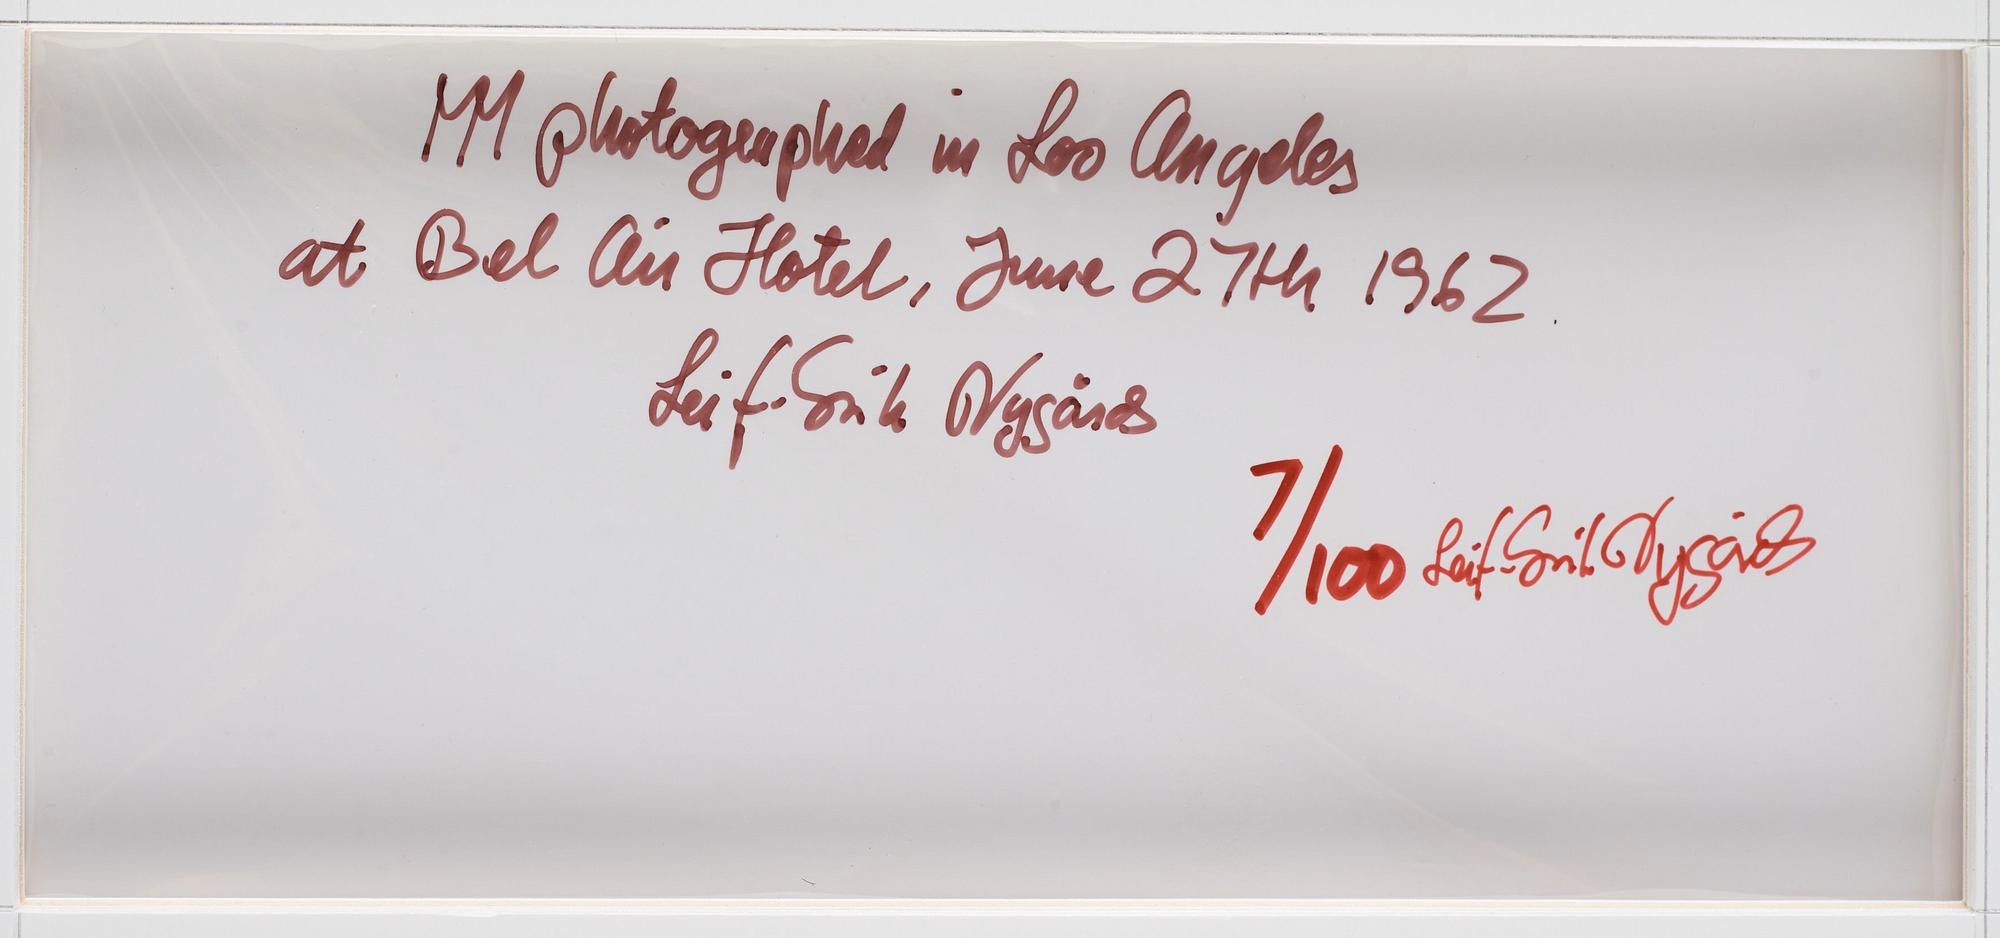 MM photographed in Los Angeles
at Bel Air Hotel, June 27th 1962
Leif-Erik Nygårds
7/100 Leif-Erik Nygårds